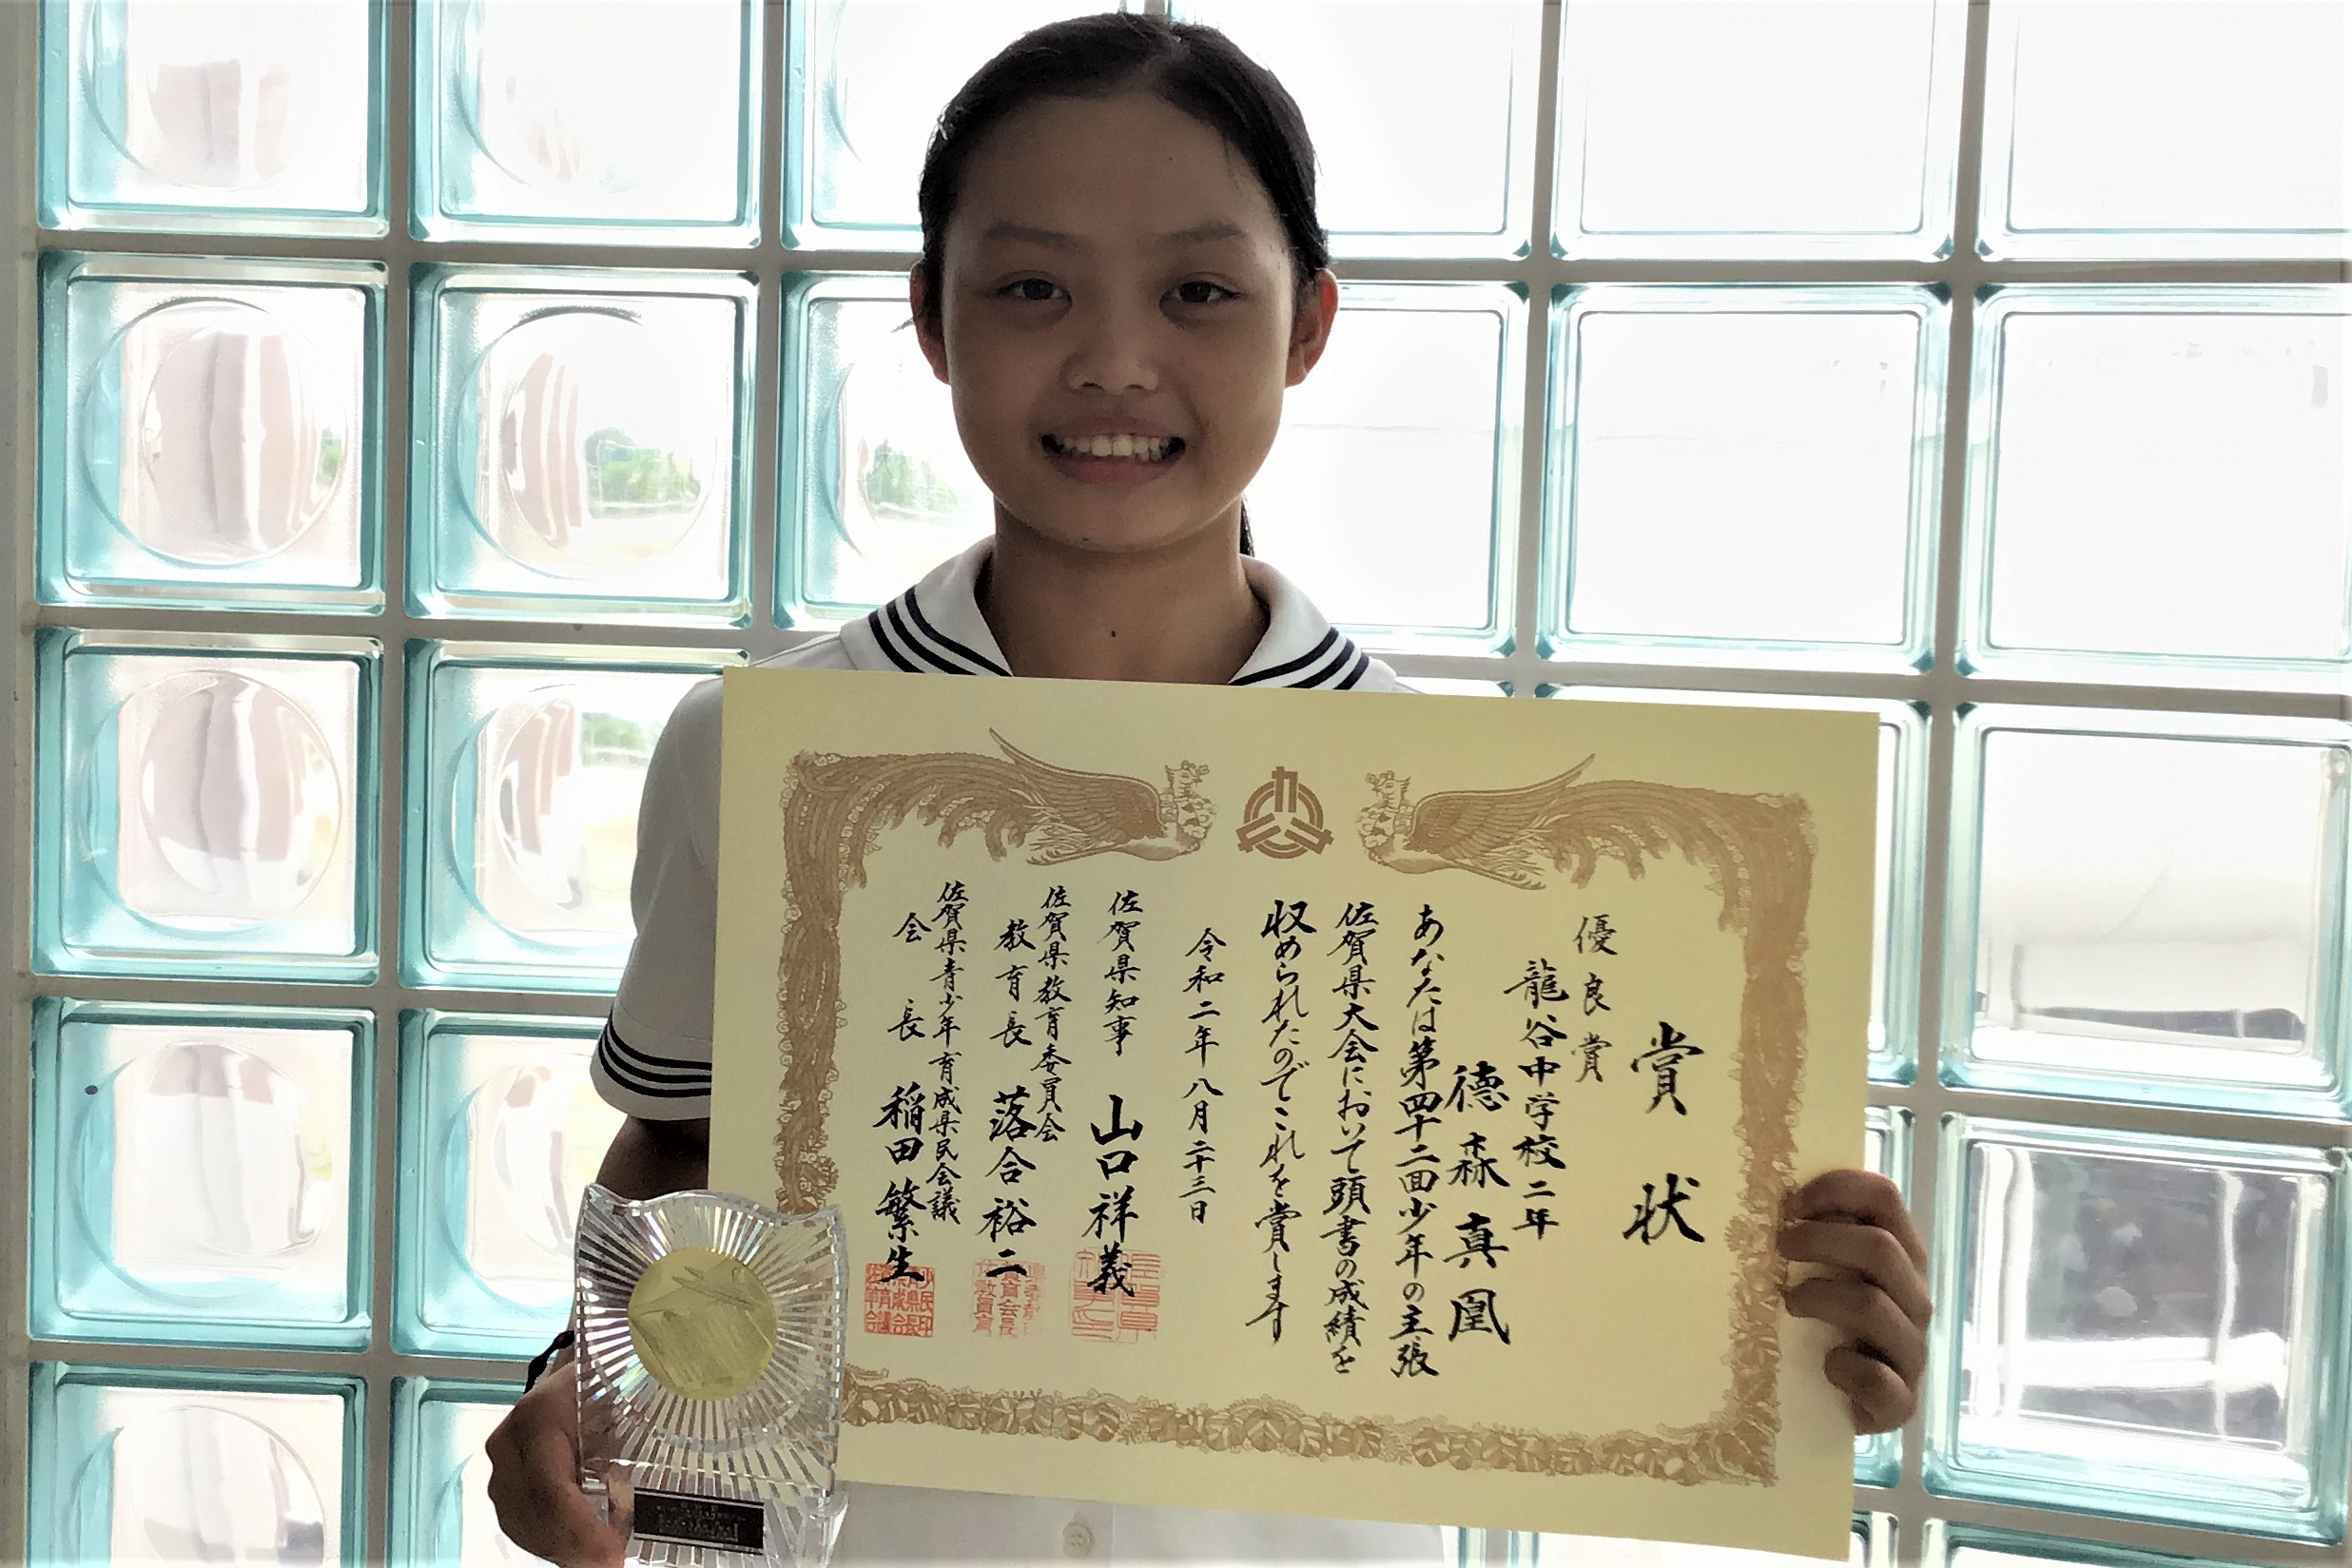 賞状
優良賞
龍谷中学校二年
德森真凰
あなたは第四十二回少年の主張
佐賀県大会において頭書の成績を
収められたのでこれを賞します
令和二年八月二十三日
佐賀県知事 山口祥義
佐賀県教育委員会
教育長 落合裕二
佐賀県青少年育成県民会議
会長 稲田繁生